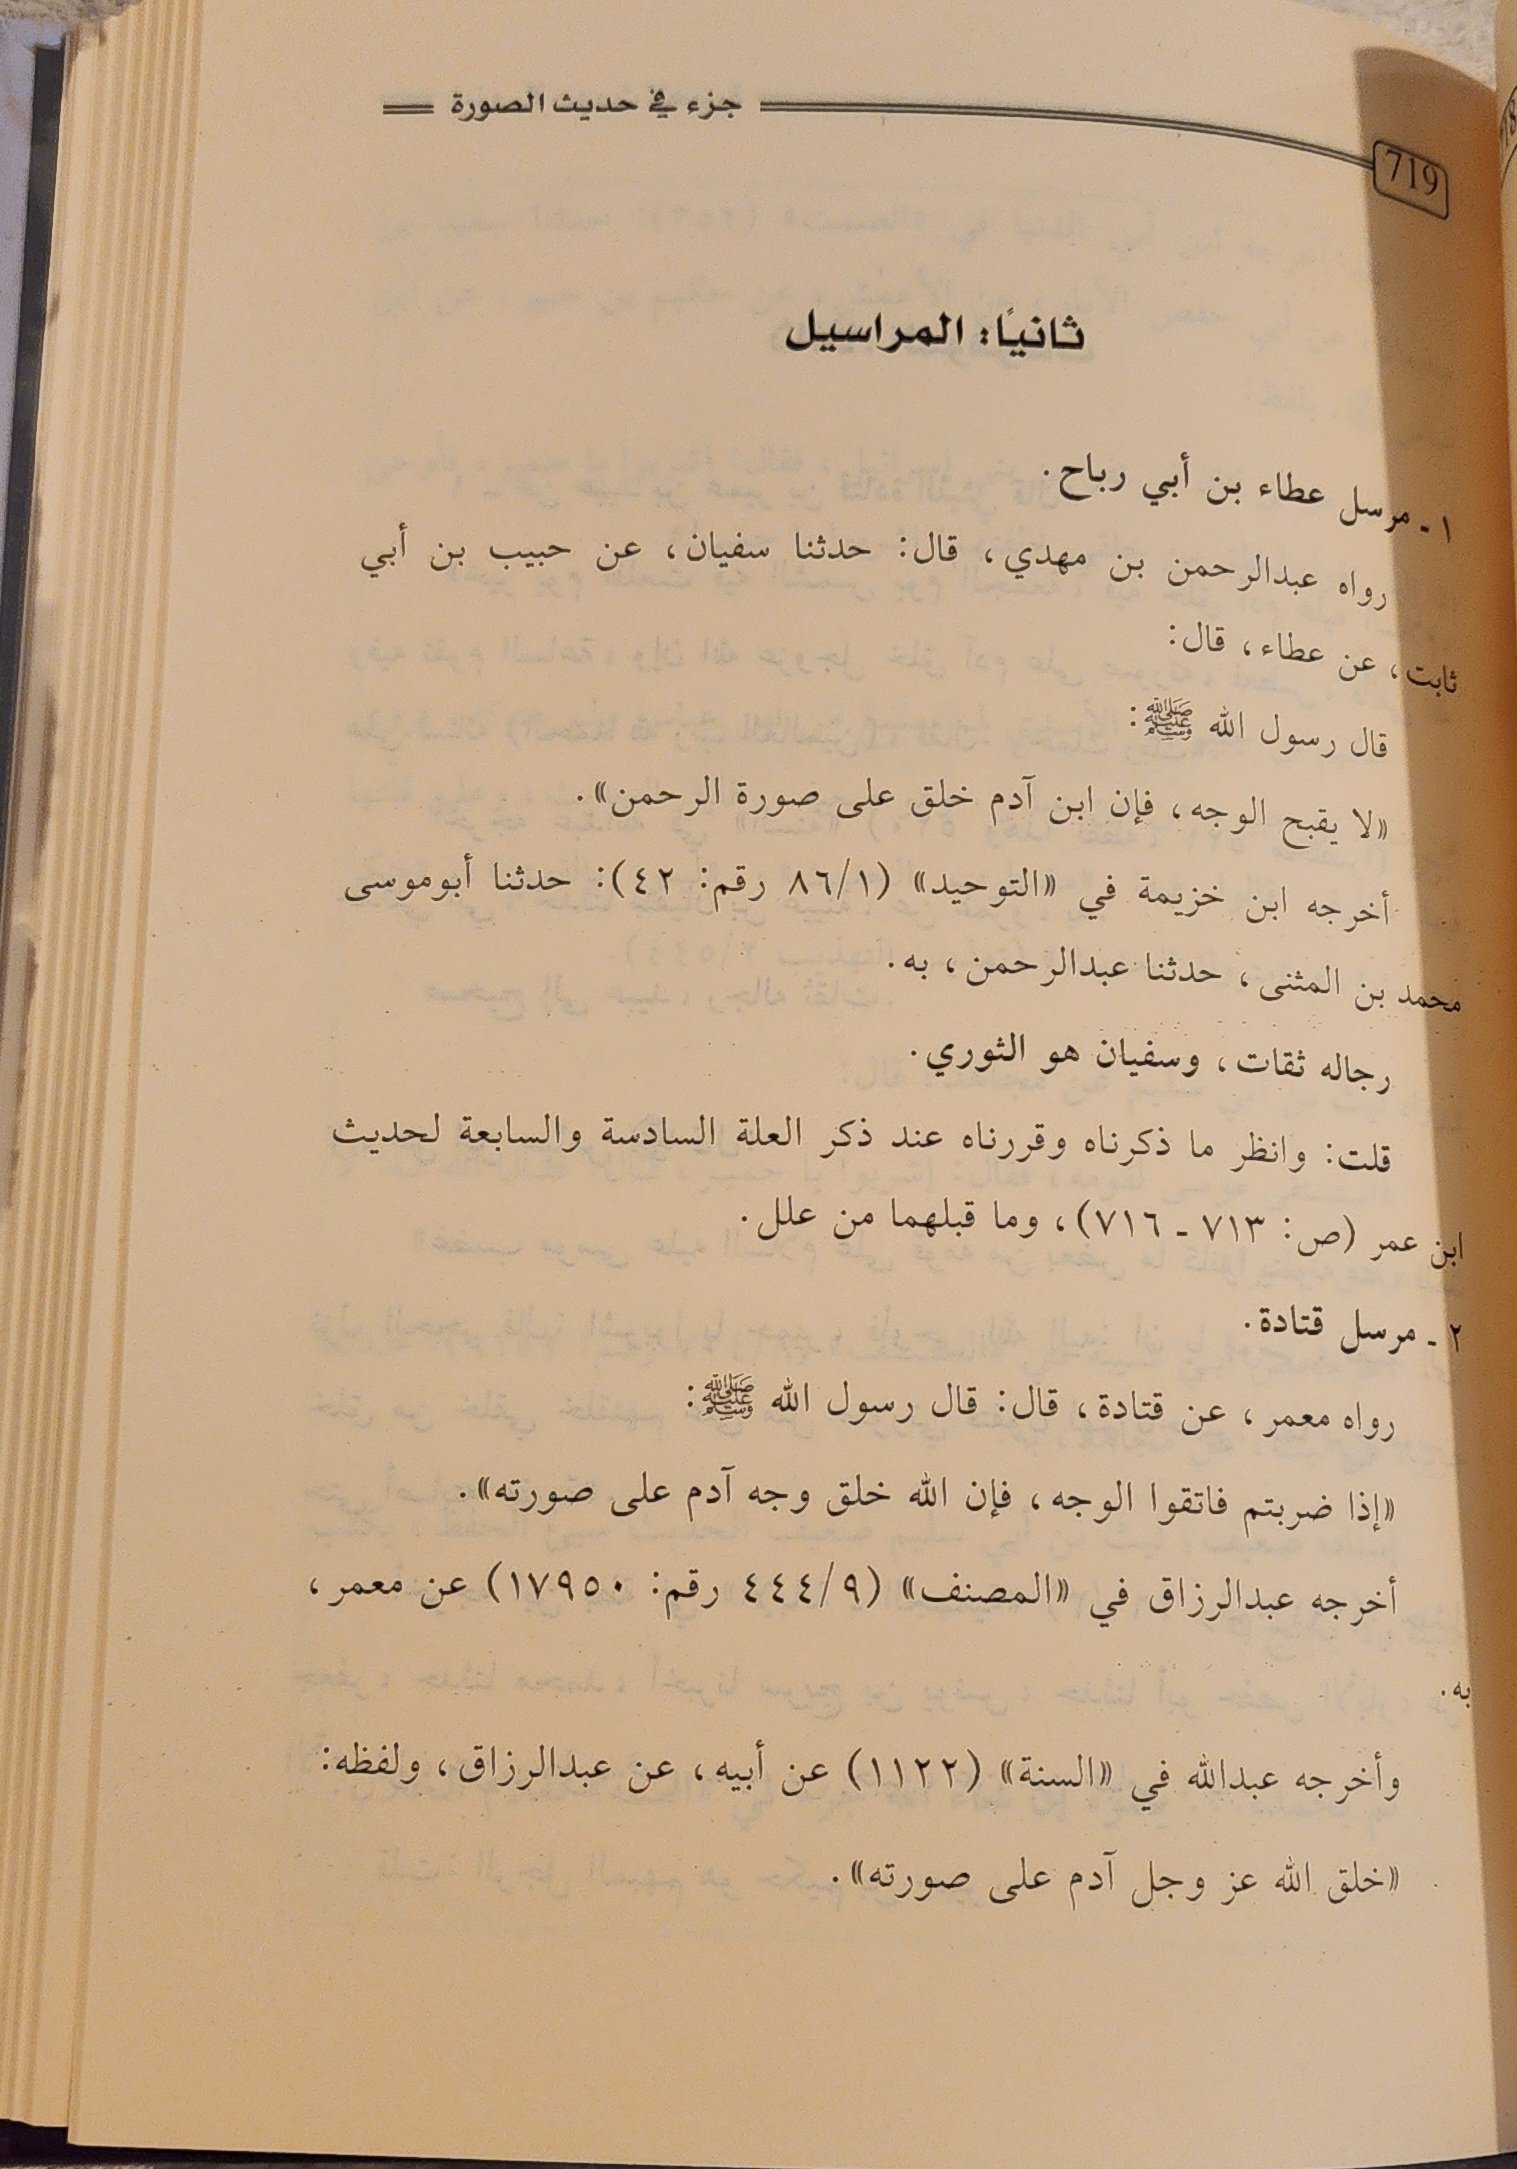 جزء في حديث الصورة
719
ثانيًا: المراسيل
١ - مرسل عطاء بن أبي رباح.
رواه عبدالرحمن بن مهدي، قال: حدثنا سفيان، عن حبيب بن أبي
ثابت، عن عطاء، قال:
قال رسول الله ﷺ:
«لا يقبح الوجه، فإن ابن آدم خلق على صورة الرحمن».
أخرجه ابن خزيمة في «التوحيد» (٨٦/١ رقم: ٤٢): حدثنا أبوموسى
محمد بن المثنى، حدثنا عبدالرحمن، به.
رجاله ثقات، وسفيان هو الثوري.
قلت: وانظر ما ذكرناه وقررناه عند ذكر العلة السادسة والسابعة لحديث
ابن عمر (ص: ٧١٣ - ٧١٦)، وما قبلهما من علل.
٢ - مرسل قتادة.
رواه معمر، عن قتادة، قال: قال رسول الله ﷺ:
«إذا ضربتم فاتقوا الوجه، فإن الله خلق وجه آدم على صورته».
أخرجه عبدالرزاق في «المصنف» (٤٤٤/٩ رقم: ١٧٩٥٠) عن معمر،
به.
وأخرجه عبدالله في «السنة» (١١٢٢) عن أبيه، عن عبدالرزاق، ولفظه:
«خلق الله عز وجل آدم على صورته».